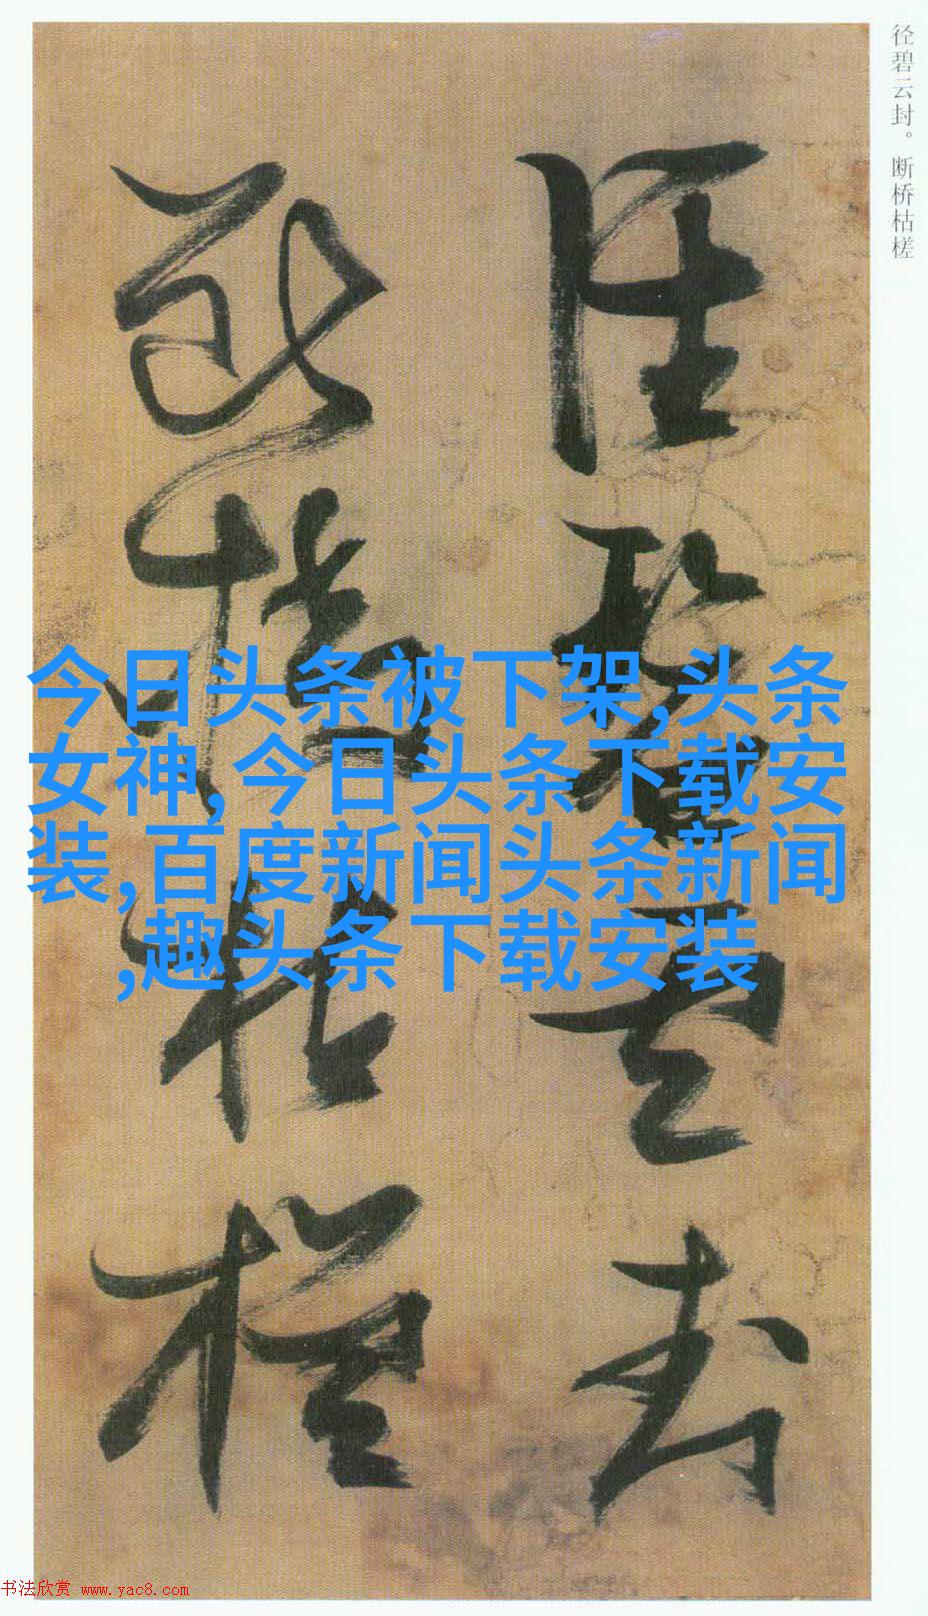 径碧云封。断桥枯槎
径碧云封
断桥枯槎
今日头条被下架,头条
女神,今日头条下载安
装,百度新闻头条新闻
,趣头条下载安装
书法欣赏 www.yac8.com